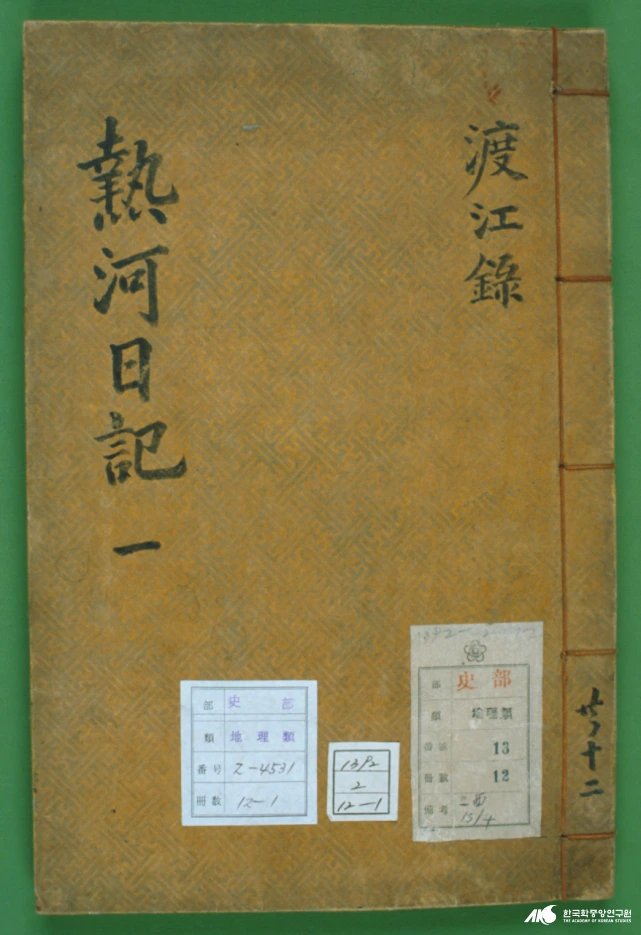 熱河日記 一
渡江錄
共十二
部 史部
類 地理類
番号 2-4531
冊数 12-1
1392
2
12-1
部 史部
類 地理類
番號 13
冊數 12
備考
15/4
한국학중앙연구원
THE ACADEMY OF KOREAN STUDIES
AKS